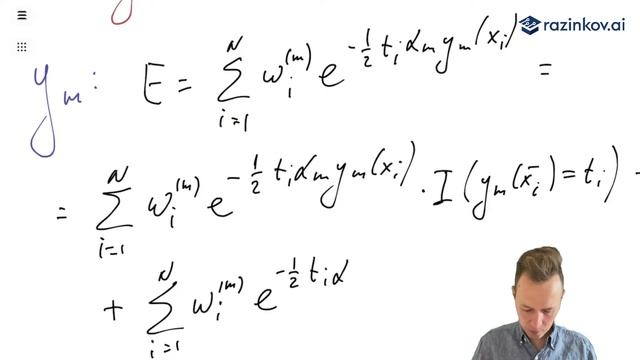 razinkov.ai
y_m: E = ∑_{i=1}^{N} w_i^{(m)} e^{-\frac{1}{2} t_i α_m y_m(x_i)} =
= ∑_{i=1}^{N} w_i^{(m)} e^{-\frac{1}{2} t_i α_m y_m(x_i)} · I(y_m(x̄_i) = t_i) +
+ ∑_{i=1}^{N} w_i^{(m)} e^{-\frac{1}{2} t_i α